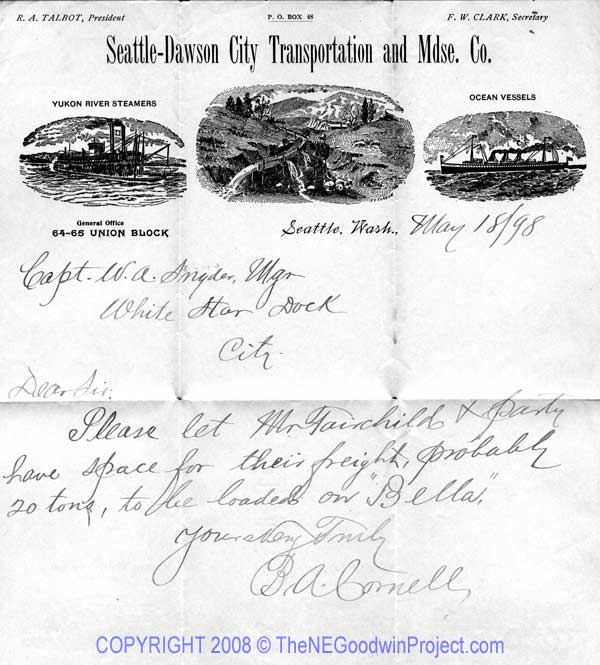 R. A. TALBOT, President
P. O. BOX 48
F. W. CLARK, Secretary
Seattle-Dawson City Transportation and Mdse. Co.
YUKON RIVER STEAMERS
OCEAN VESSELS
General Office
64-65 UNION BLOCK
Seattle, Wash., May 18/98
Capt. W. A. Snyder, Mgr
White Star Dock
City.
Dear Sir:
Please let Mr. Fairchild & party
have space for their freight, probably
20 tons, to be loaded on "Bella."
Yours Very Truly
B. A. Cornell
COPYRIGHT 2008 © TheNEGoodwinProject.com